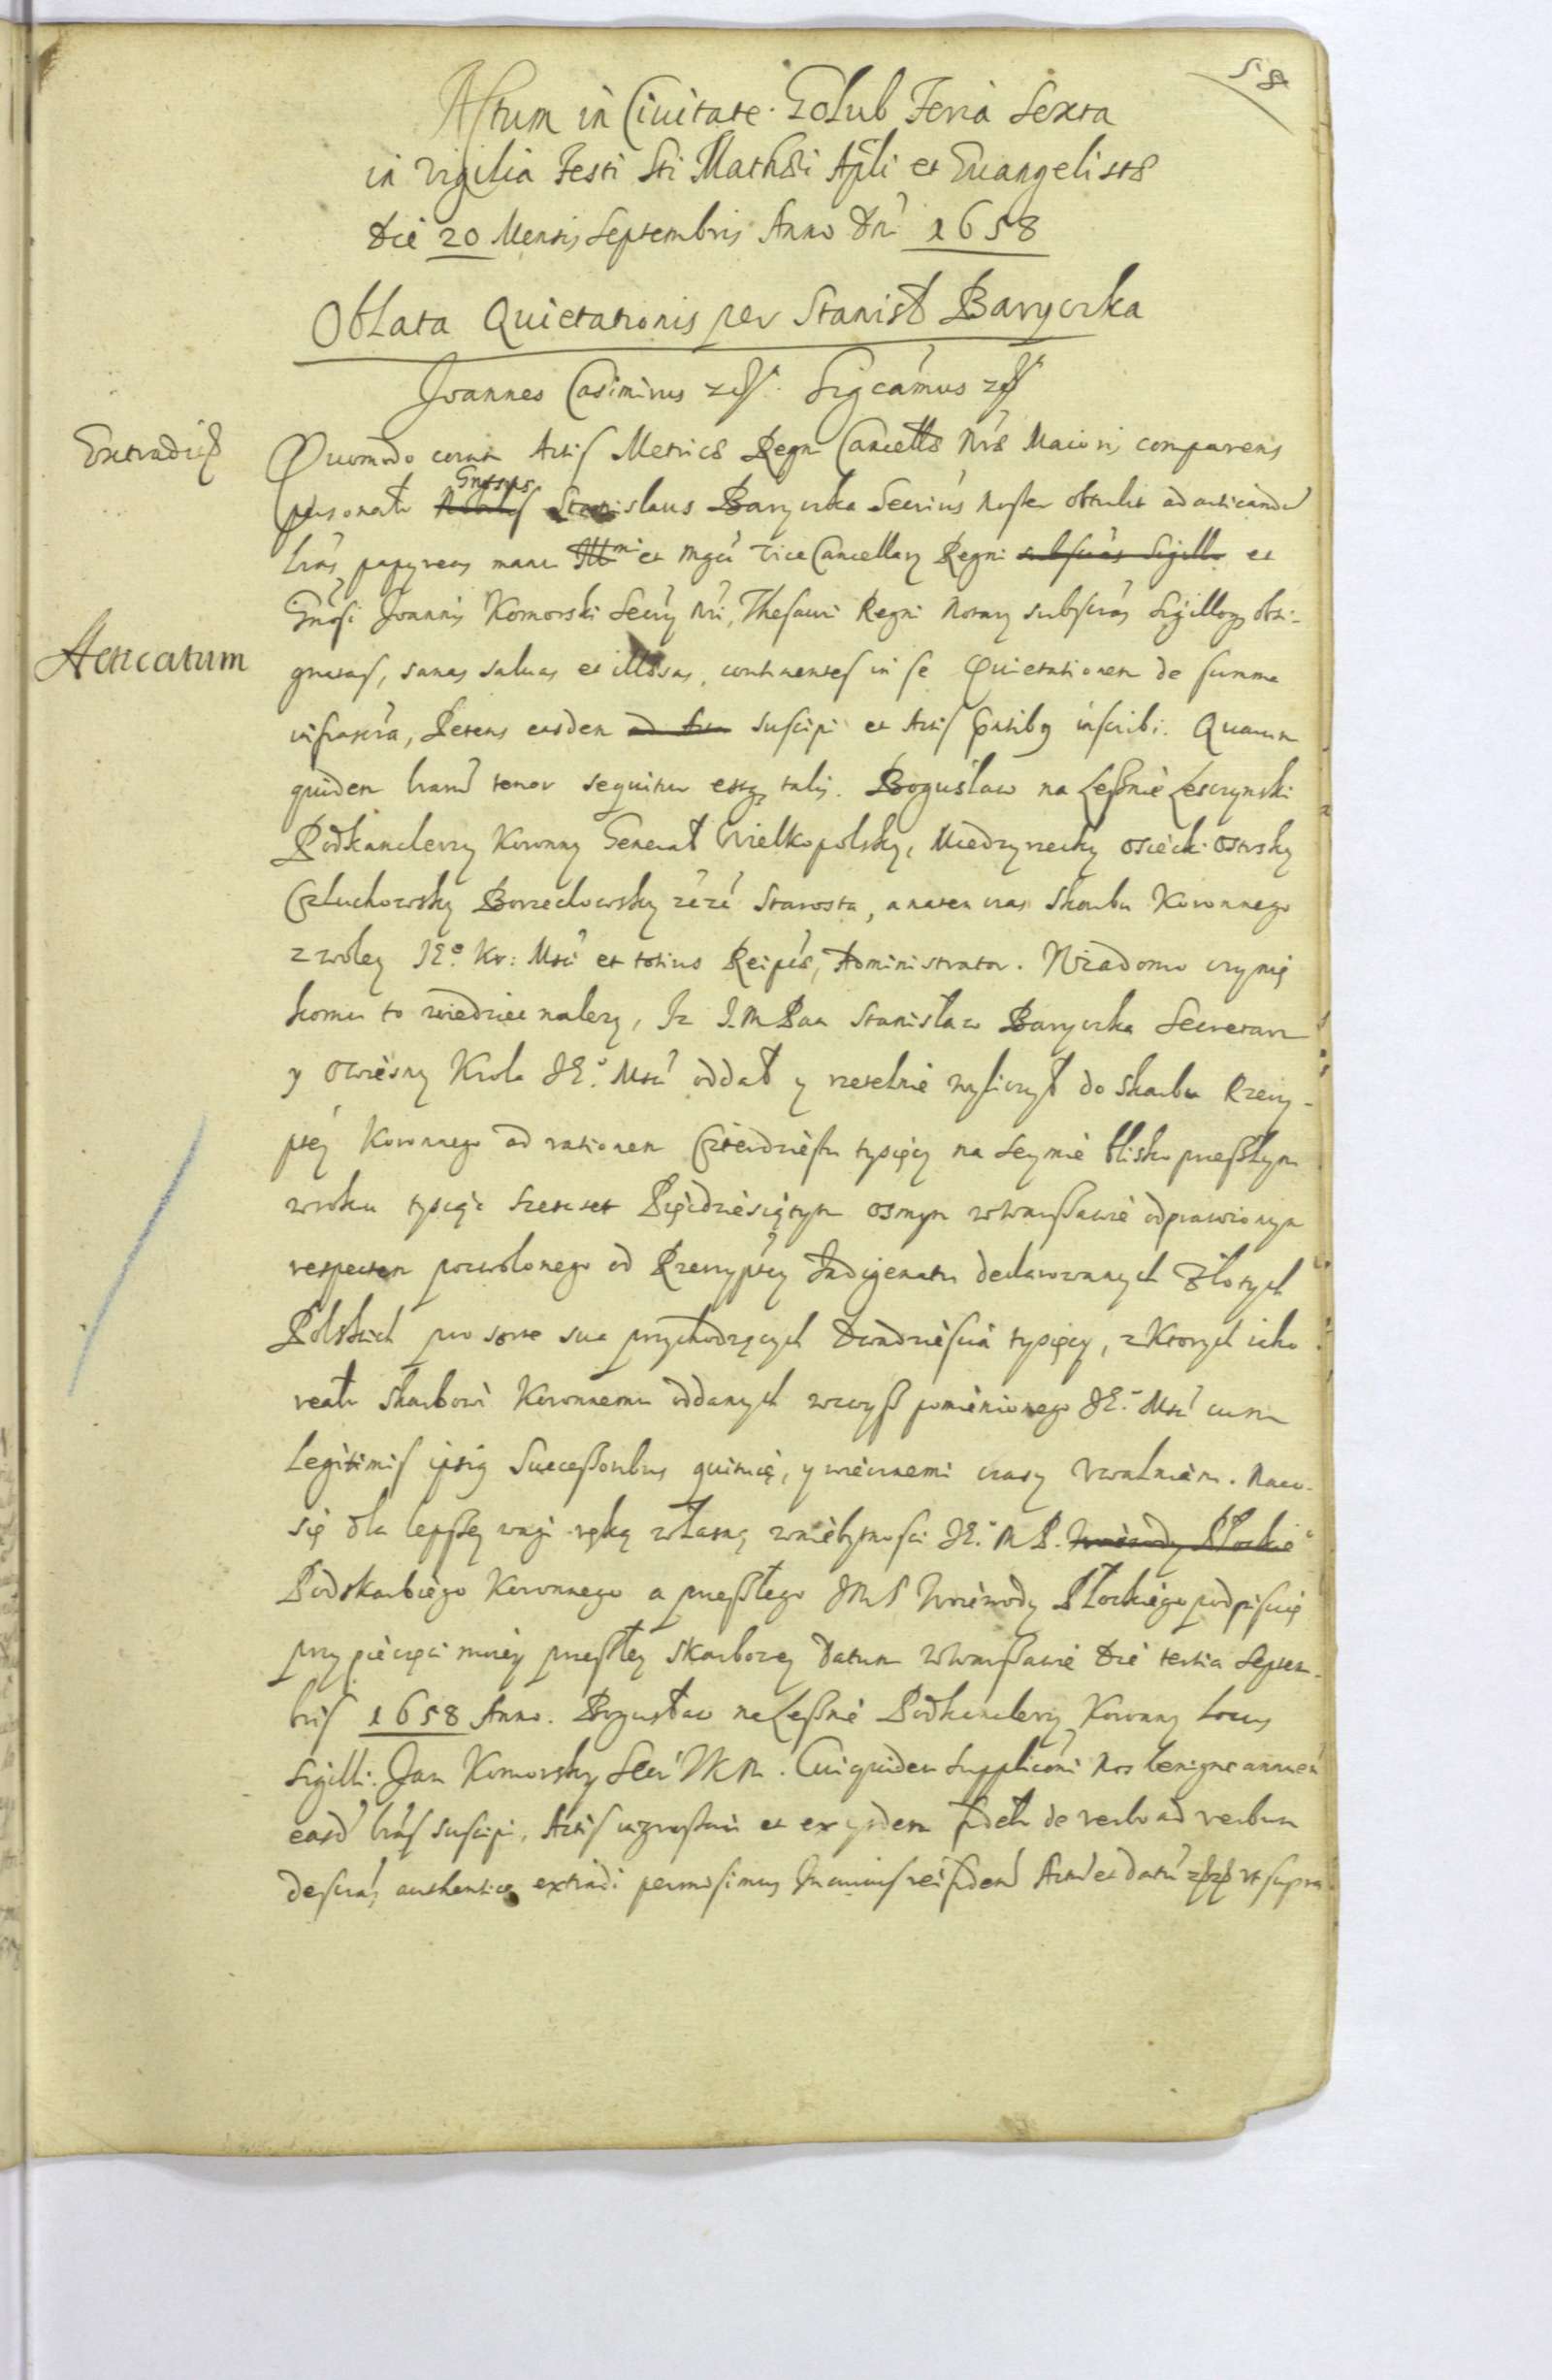 58
Actum in Ciuitate Golub Feria Sexta
in Vigilia Festi Sti Mathæi Apli et Euangelistæ
Die 20 Mensis Septembris Anno Dni 1658
Oblata Quietationis per Stanisł Baryczka
Joannes Casimirus Sigcamus
Extradit
Quomodo coram Actis Metricæ Regn Cancellæ Nræ Maioris comparens
personalr Gnrosus Stanislaus Baryczka Secrius Noster obtulit ad acticandu
lras papyreas manu Illmi et Mgci Vice Cancellary Regni subscras Sigillo et
Gnrosi Joannis Komorski Secrij Nri, Thesauri Regni Notary subscras Sigilloq obsi-
Acticatum
gnatas, sanas saluas et illæsas, continentes in se Quietationem de summa
infrascra, Petens easdem suscipi et Actis pntibq inscribi. Quarum
quidem lraru tenor sequitur estq talis. Bogusław na Leßnie Lesczynski
Podkanclerzy Koronny Generał Wielkopolsky, Miedzyrzecky Osiecki Ostrsky
Człuchowsky Borzechowsky Starosta, a naten czas Skarbu Koronnego
z woley JE° Kr: Msci et totius Reipcæ, Administrator. Wiadomo czynię
komu to wiedziec nalezy, Iz J.M Pan Stanisław Baryczka Secretarz
y Krola JE° Msci oddał y rzetelnie wyliczył do Skarbu Rzeczy-
ptey Koronnego ad rationem Czterdziestu tysięcy na Seymie blisko preßłym
w roku tysiąc szescset Pięcdziesiątym osmym w Warßawie odprawionym
respectem pozwolonego od Rzeczyptey Indigenatu declarowanych Złotych
Polskich pro sorte sua przychodzących dwadziescia tysięcy, z Ktorych iako
realr Skarbowi Koronnemu oddanych zwyß pomienionego JE° Msci cum
legitimis ipsiq Succeßoribus quituię, y wiecznemi czasy Vwalniam. Naco
się dla lepßey wagi ręką własną w niebytnosci JE° M P. Woiewody Płockie°
Podskarbiego Koronnego a preßłego JM P Woiewody Płockiego podpisuię
przy pieczęci moiey preßłey Skarbowey Datum w Warßawie Die tertia Septem-
bris 1658 Anno. Bogusław na Leßnie Podkanclerzy Koronny Locus
Sigilli. Jan Komorsky Secr JKM. Cui quidem suppliconi Nos benigne annuen
easd lras suscipi, Actis ingroßari et ex ysdem fidelr de verbo ad verbum
descras authentice extradi permisimus In cuius rei fidem Actu et datu ut supra